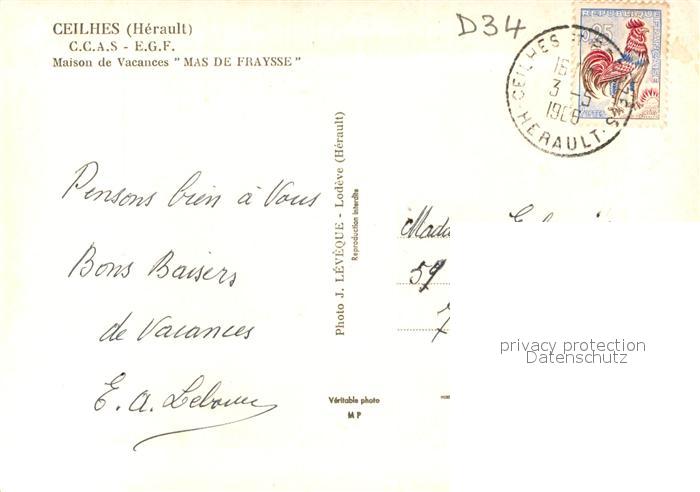 CEILHES (Hérault)
C.C.A.S - E.G.F.
Maison de Vacances " MAS DE FRAYSSE "
D34
RÉPUBLIQUE FRANÇAISE
CEILHES
3 - 5
HERAULT
Pensons bien à Vous
Bons Baisers
de Vacances
E. A.
Photo J. LÉVÊQUE - Lodève (Hérault)
Reproduction interdite
Véritable photo
M P
59
privacy protection
Datenschutz